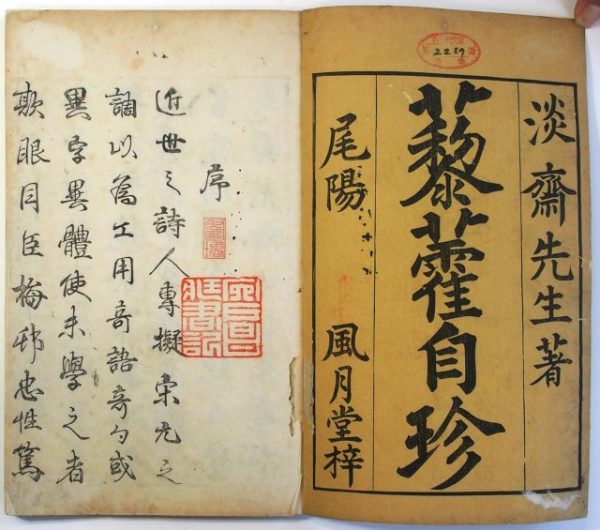 淡齋先生著
藜藿自珍
尾陽 風月堂梓
序
近世之詩人專擬宋元之
調以爲工用奇語奇句或
異字異體使未學之者
欺眼目臣梅邨忠性篤